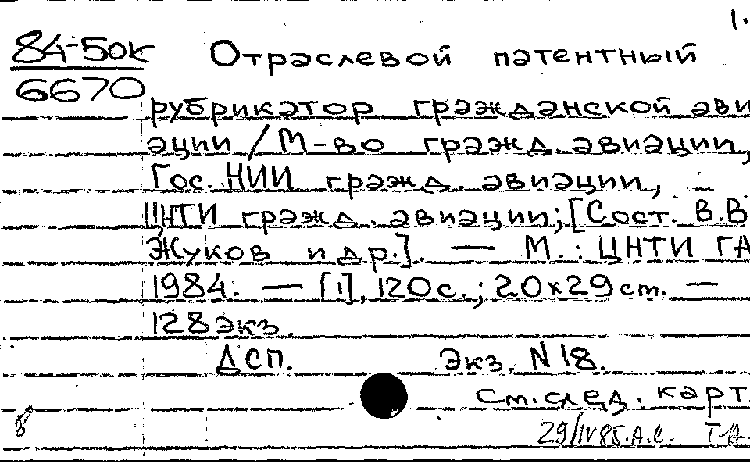 1.
84-50к Отраслевой патентный
6670
рубрикатор гражданской ави
ации / М-во гражд. авиации,
Гос. НИИ гражд. авиации, –
ЦНТИ гражд. авиации; [Сост. В.В
Жуков и др.]. — М.: ЦНТИ ГА
1984. — [1], 120 с.; 20х29 см. —
128 экз.
ДСП. Экз. N 18.
См. след. карт.
8 29/IV85. А.С.